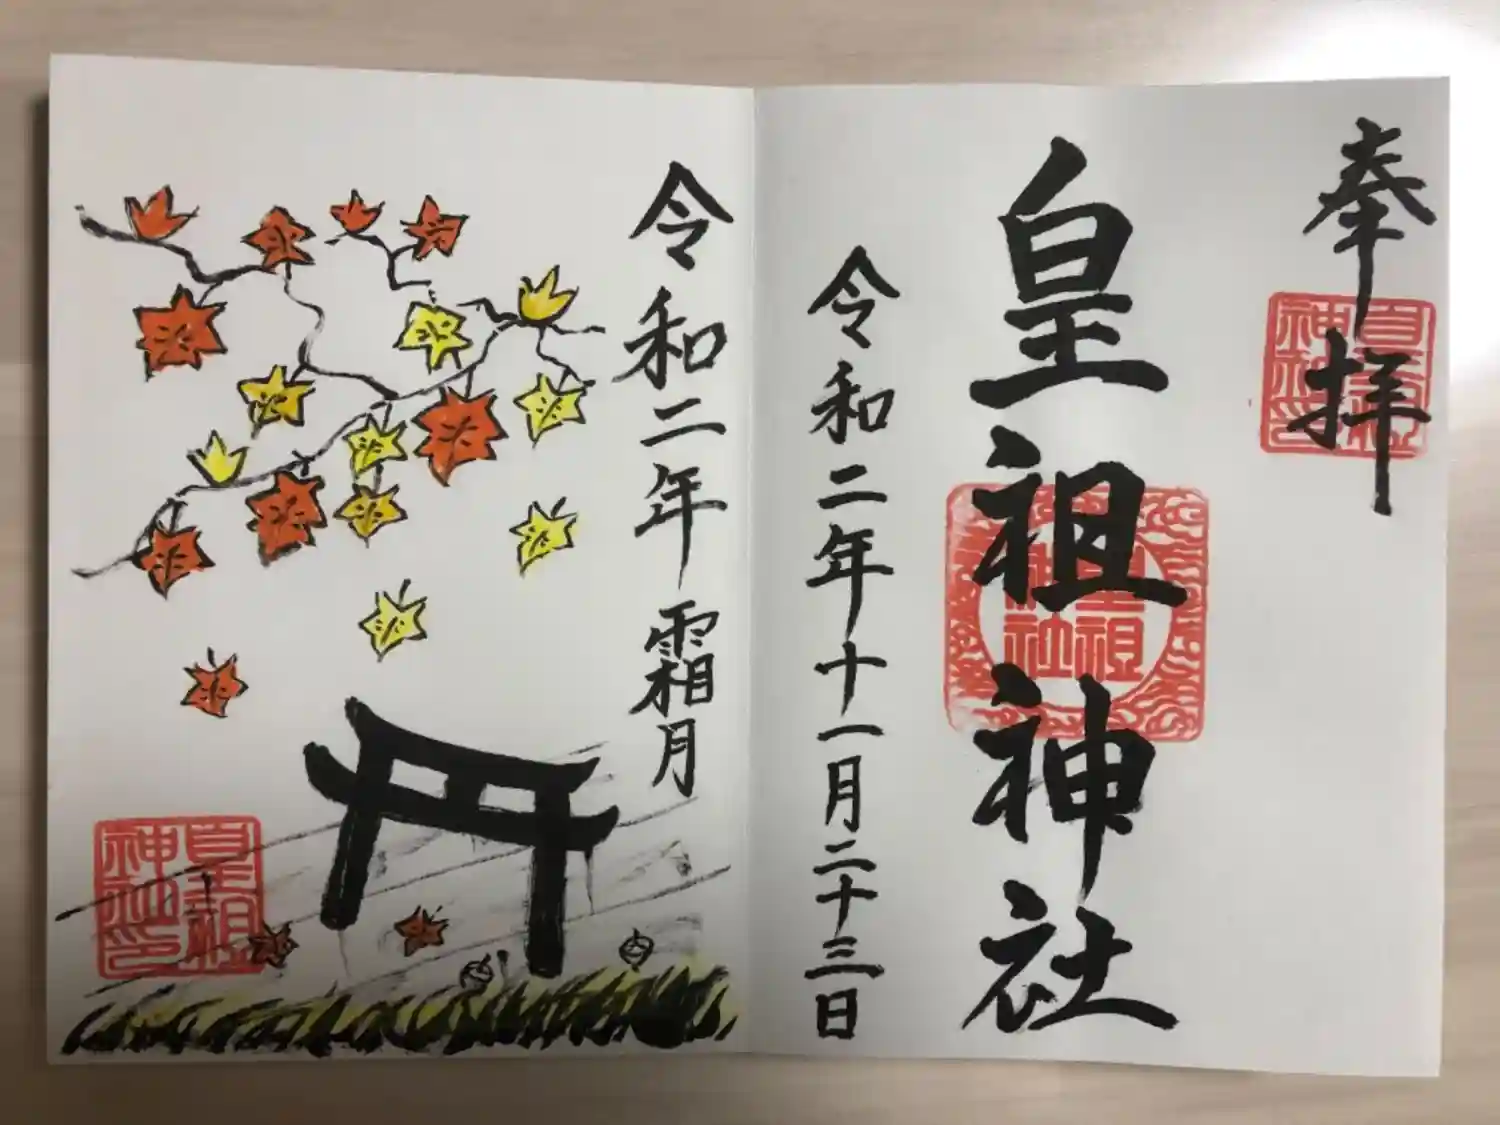 奉拝
皇祖神社
令和二年十一月二十三日
令和二年 霜月
皇祖
神社
皇祖
神社印
皇祖
神社印